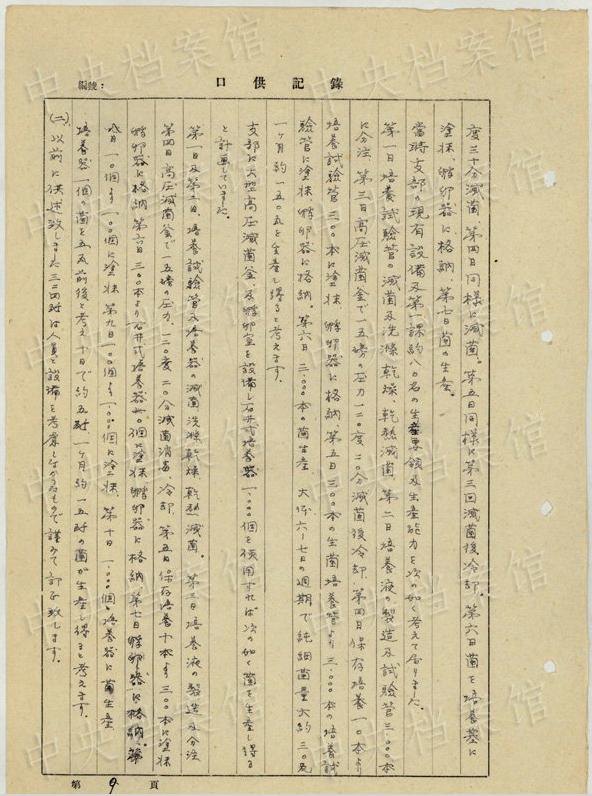 編號：
口供記錄
度三十分滅菌。第四日同様に滅菌。第五日同様に第三回滅菌後、冷却。第六日菌を培養基に
塗抹、孵卵器に格納、第七日菌の生産。
当時支部の現有設備及第一課約八〇名の生産要領及生産能力を次の如く考えて居りました。
第一日培養試験管の滅菌及洗滌乾燥、乾熱滅菌、第二日培養液の製造及試験管三.〇〇〇本
に分注、第三日高圧滅菌釜で一.五磅の圧力一二〇度二〇分滅菌後冷却、第四日保存培養一〇本より
培養試験管三〇〇本に塗抹、孵卵器に格納、第五日三〇〇本の生菌培養管より三.〇〇〇本の培養試
験管に塗抹、孵卵器に格納。第六日三.〇〇〇本の菌生産、大体六～七日の週期で純細菌量大約三〇瓦
一ヶ月約一五〇瓦を生産し得ると考えます。
支部に大型高圧滅菌釜、及孵卵室を設備し石井式培養器一.〇〇〇個を使用すれば次の如く菌を生産し得る
と計画していました。
第一日及第二日、培養試験管及培養器の滅菌洗滌乾燥、乾熱滅菌。第三日培養液の製造及分注
第四日高圧滅菌釜で一.五磅の圧力、一二〇度二〇分滅菌消毒、冷却、第五日保存培養十本より三〇〇本に塗抹
孵卵器に格納、第六日三〇〇本より石井式培養器一〇個に塗抹、孵卵器に格納、第七日孵卵器に格納、第
八日一〇個より一〇〇個に塗抹、第九日一〇〇個より一.〇〇〇個に塗抹、第十日一.〇〇〇個の培養器に菌生産
培養器一個の菌を五瓦前後と考え十日で約五瓩一ヶ月約一五瓩の菌が生産し得ると考えます。
(二)、以前に供述致しました三.二四瓩は人員と設備を考慮しなかったもので謹みて訂正致します。
第 9 頁
中央档案馆